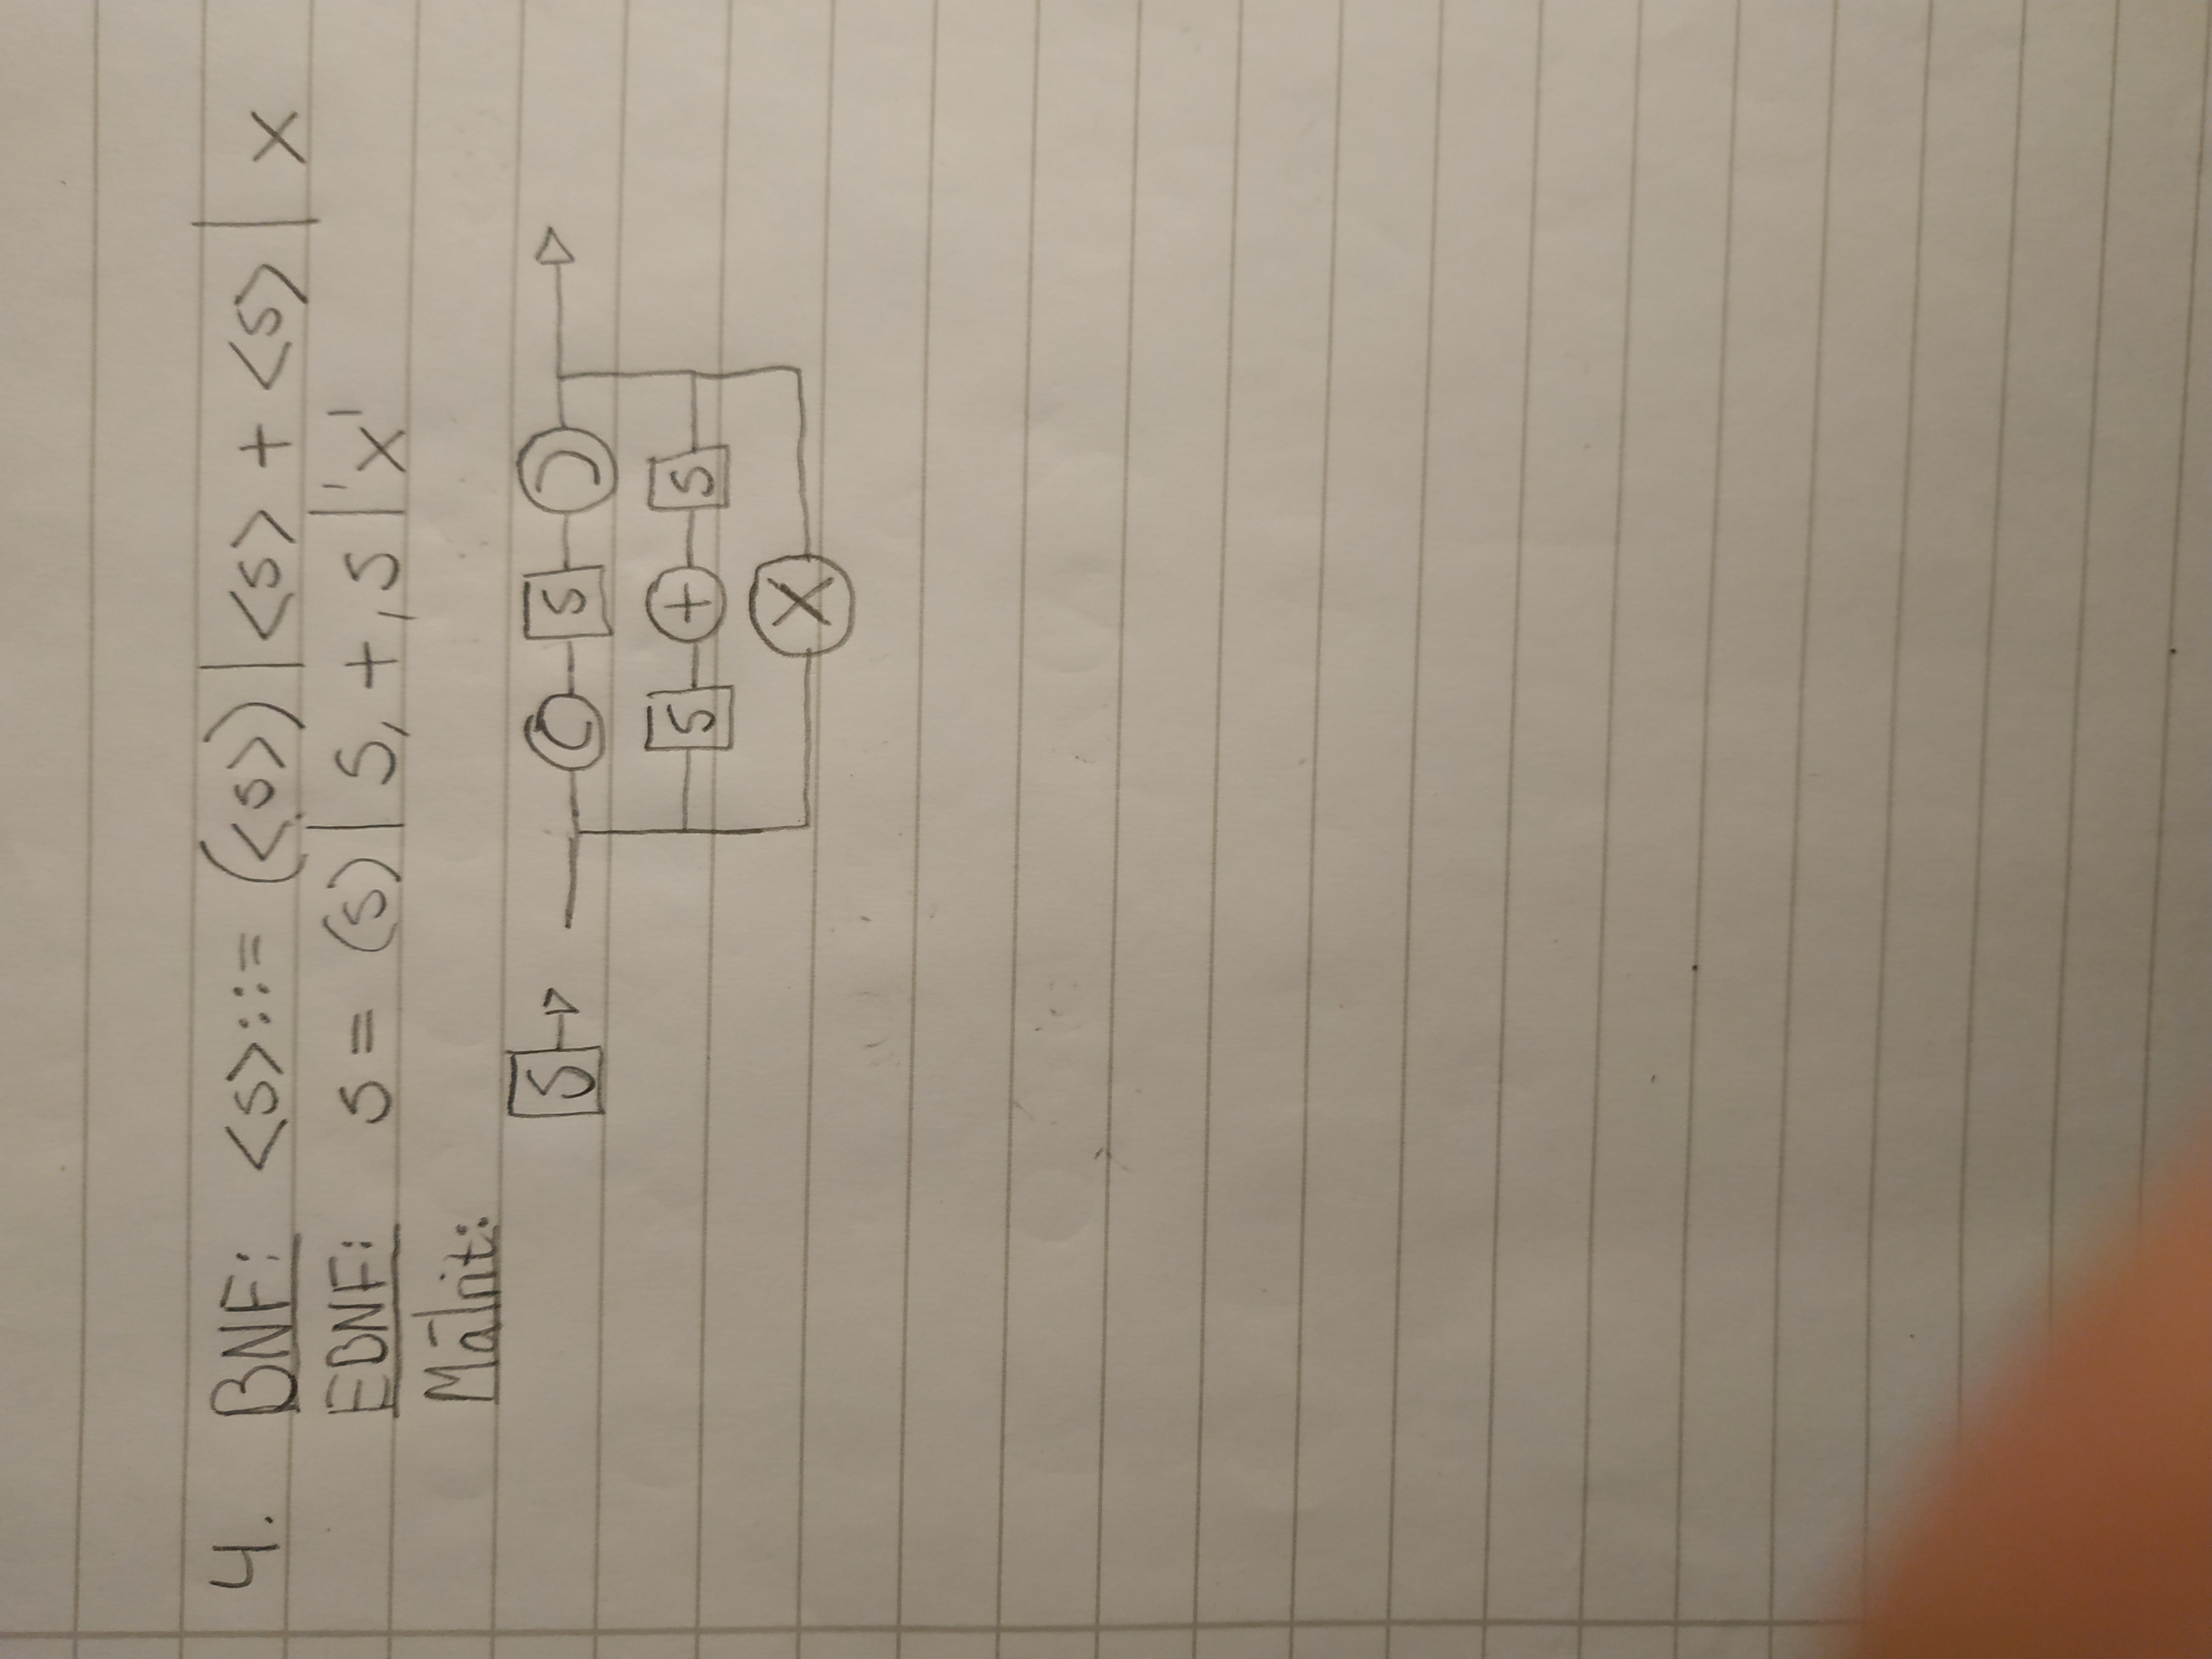 4. BNF: <s>::= (<s>) | <s> + <s> | x
EBNF: s = (s) | s, +, s | 'x'
Málrit:
S ( s )
s + s
x